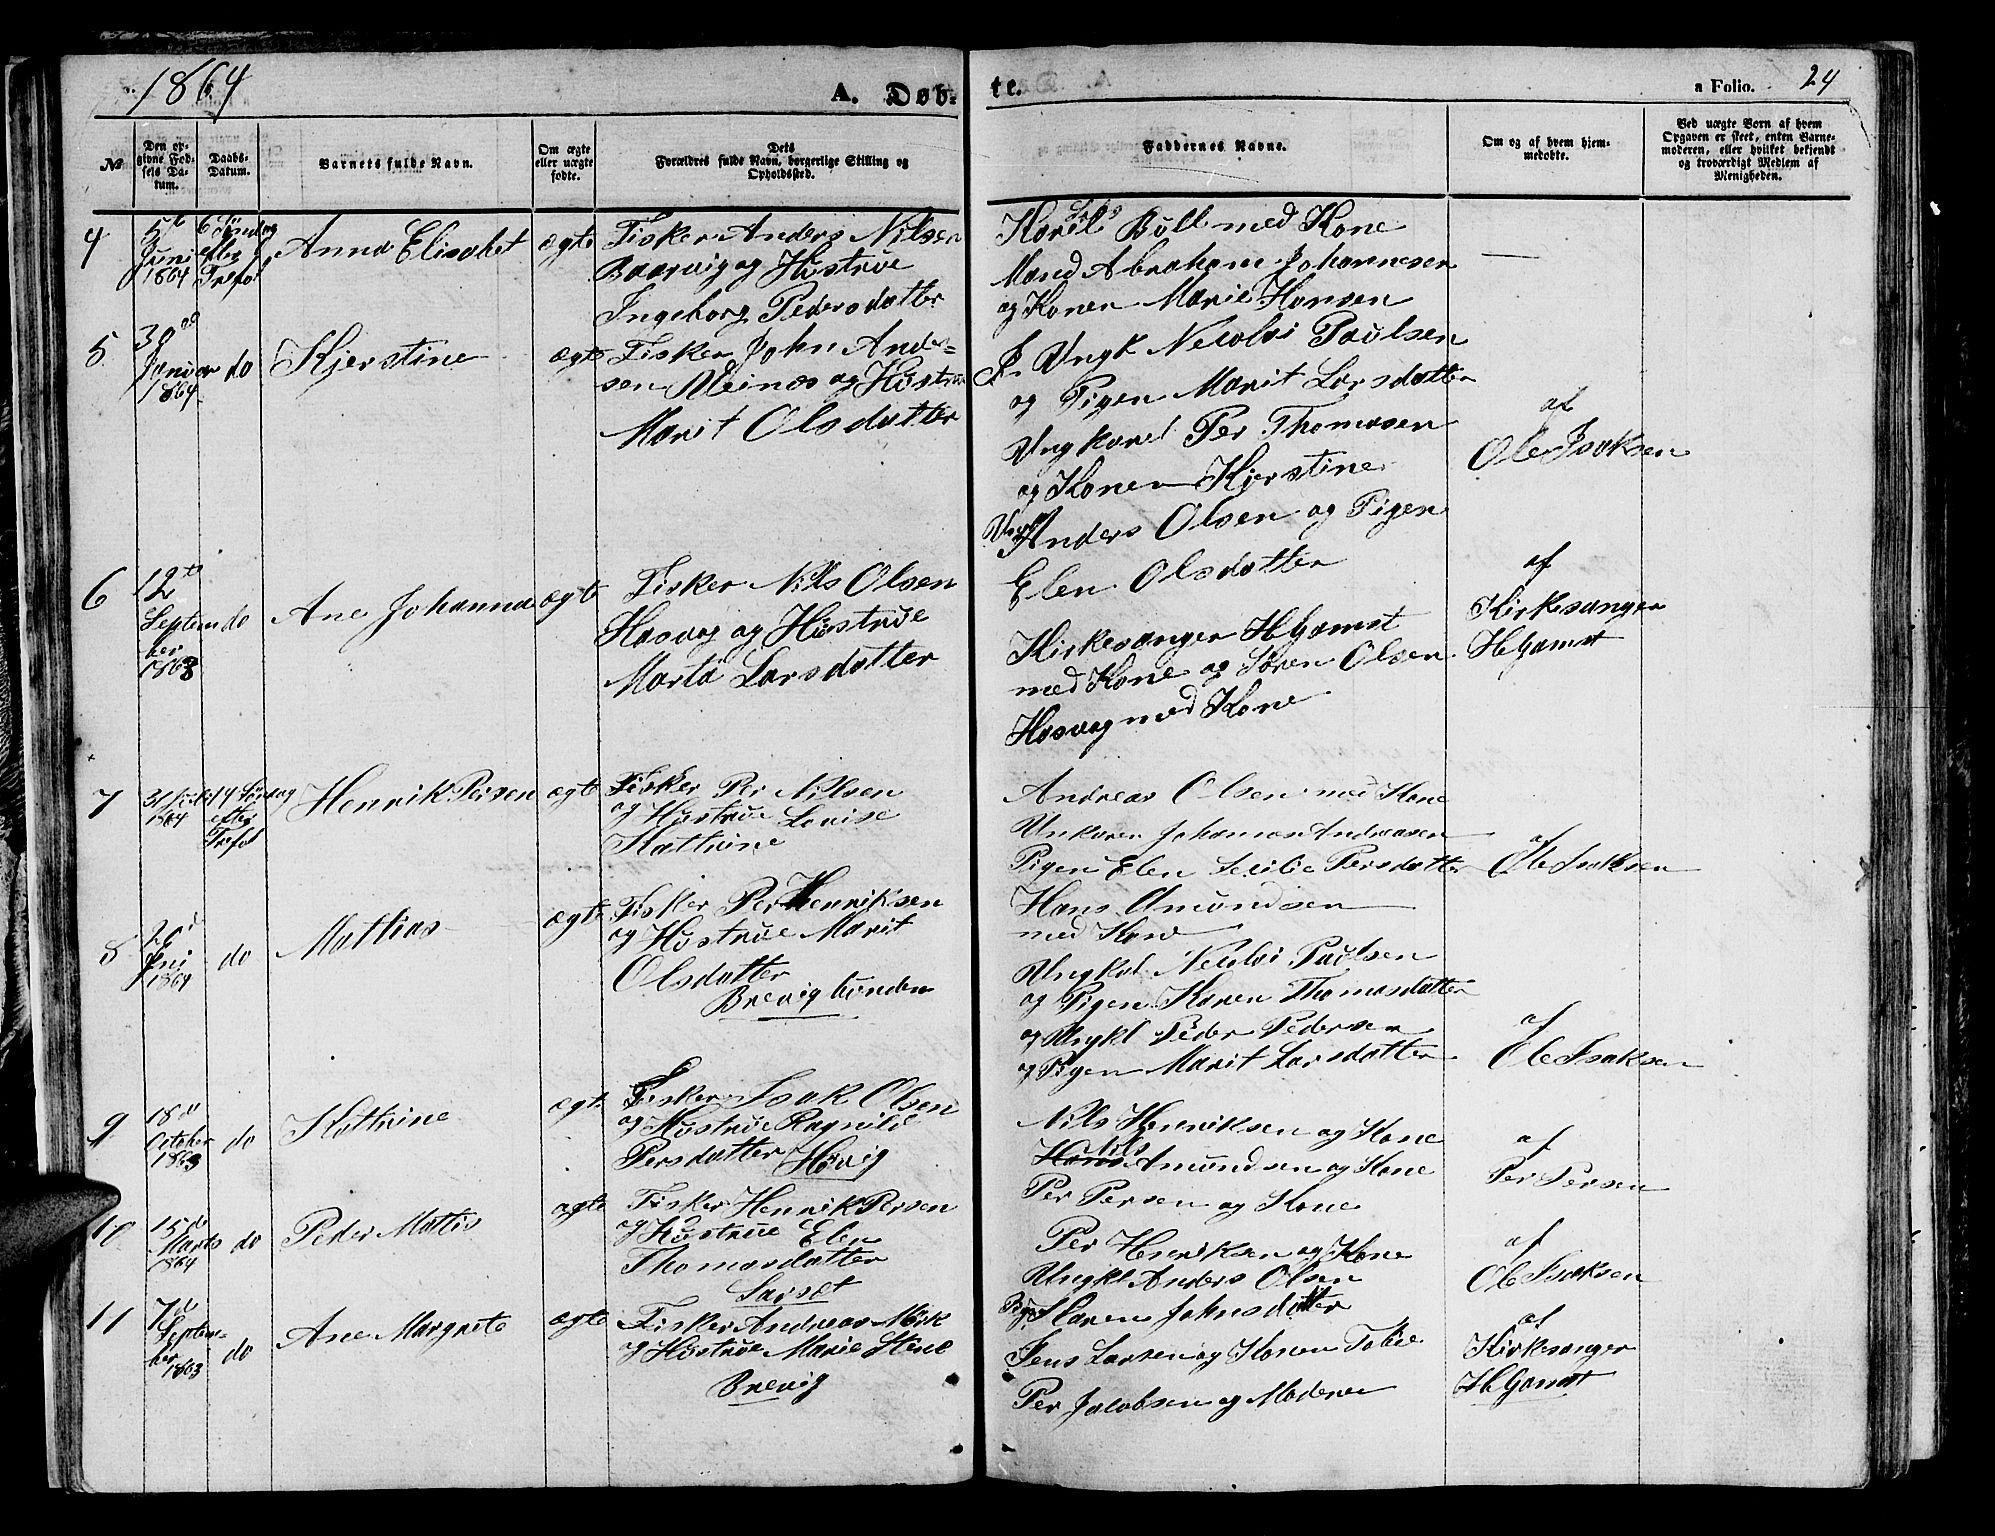 1864
A. Døb-
te.
a Folio. 24
№
Den op-
givne Fød-
sels Da-
tum.
Daabs-
Datum.
Barnets fulde Navn.
Om ægte
eller uægte
fødte.
Dets
Forældres fulde Navn, borgerlige Stilling og
Opholdssted.
Faddernes Navne.
Om og af hvem hjem-
medøbte.
Ved uægte Børn af hvem
Opgaven er skeet, enten Barne-
moderen, eller hvilket bekjendt
og troværdigt Medlem af
Menigheden.
4
5te
Juni
1864
6 Søndag
efter
Trefol
Anna Elisabet
ægte
Fisker Anders Nilsen
Baarvig og Hustrue
Ingeborg Pedersdatter
Karel Bull med Kone
Mand Abraham Johannesen
og Konen Marie Hansen
5
30
Januar
1864
do
Kjerstine
ægte
Fisker John Ander-
sen Kleines og Hustrue
Marit Olsdatter
Ungk Necolai Paulsen
og Pigen Marit Larsdatter
Ungkarel Per Thomasen
og Konen Kjerstine
Anders Olsen og Pigen
Elen Olsdatter
af
Ole Isaksen
6
12te
Septem
ber
1863
do
Ane Johanna
ægte
Fisker Nils Olsen
Hasvag og Hustrue
Marta Larsdatter
Kirkesanger H Gamst
med Kone og Søren Olsen
Hasvag med Kone
af
Kirkesanger
H Gamst
7
31
1864
14 Søndag
efter
Trefol
Henrik Persen
ægte
Fisker Per Nilsen
og Hustrue Lovise
Kattrine
Andreas Olsen med Kone
Unkaren Johannas Andreasen
Pigen Elen Secilie Persdatter
Hans Amundsen
med Kone
af
Ole Isaksen
8
20
Juni
1864
do
Mattias
ægte
Fisker Per Henriksen
og Hustrue Marit
Olsdatter
Brevigbunden
Ungkal Necolai Paulsen
og Pigen Karen Thomasdatter
og Ungkl Peder Pedersen
og Pigen Marit Larsdatter
af
Ole Isaksen
9
18d
October
1863
do
Kattrine
ægte
Fisker Isak Olsen
og Hustrue Ragnild
Persdatter Høvig
Nils Henriksen og Kone
Nils
Hans Amundsen og Kone
Per Persen og Kone
af
Per Persen
10
15de
Marts
1864
do
Peder Mattis
ægte
Fisker Henrik Persen
og Hustrue Elen
Thomasdatter
Larset
Per Henriksen og Kone
Ungkl Anders Olsen
Karen Johnsdatter
af
Ole Isaksen
11
7de
Septem-
ber
1863
do
Ane Margrete
ægte
Fisker Andreas Mørk
og Hustrue Marie Stene
Brevig
Jens Larsen og Konen Tobie
Per Jakobsen og Moderen
af
Kirkesanger
H Gamst